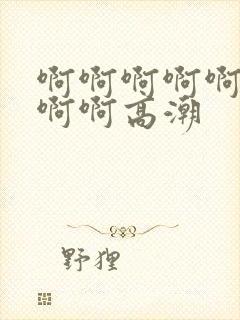 啊啊啊啊啊
啊啊高潮
野狸